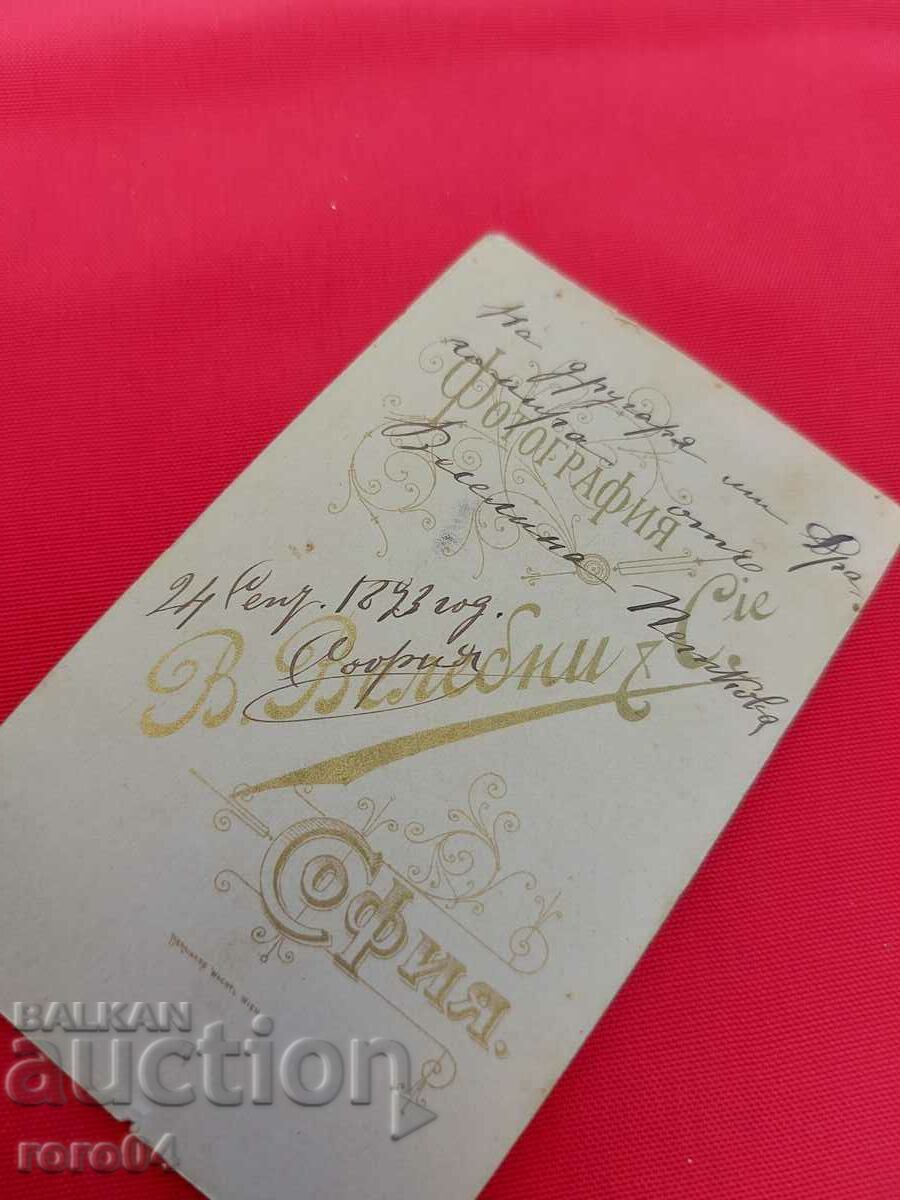 На другаря ми Дра-
гомира отъ
Веселина Пенкова
ФОТОГРАФИЯ
В. Велебни & Cie
24 Септ. 1893 год.
София
СОФИЯ.
BALKAN
auction
roro04